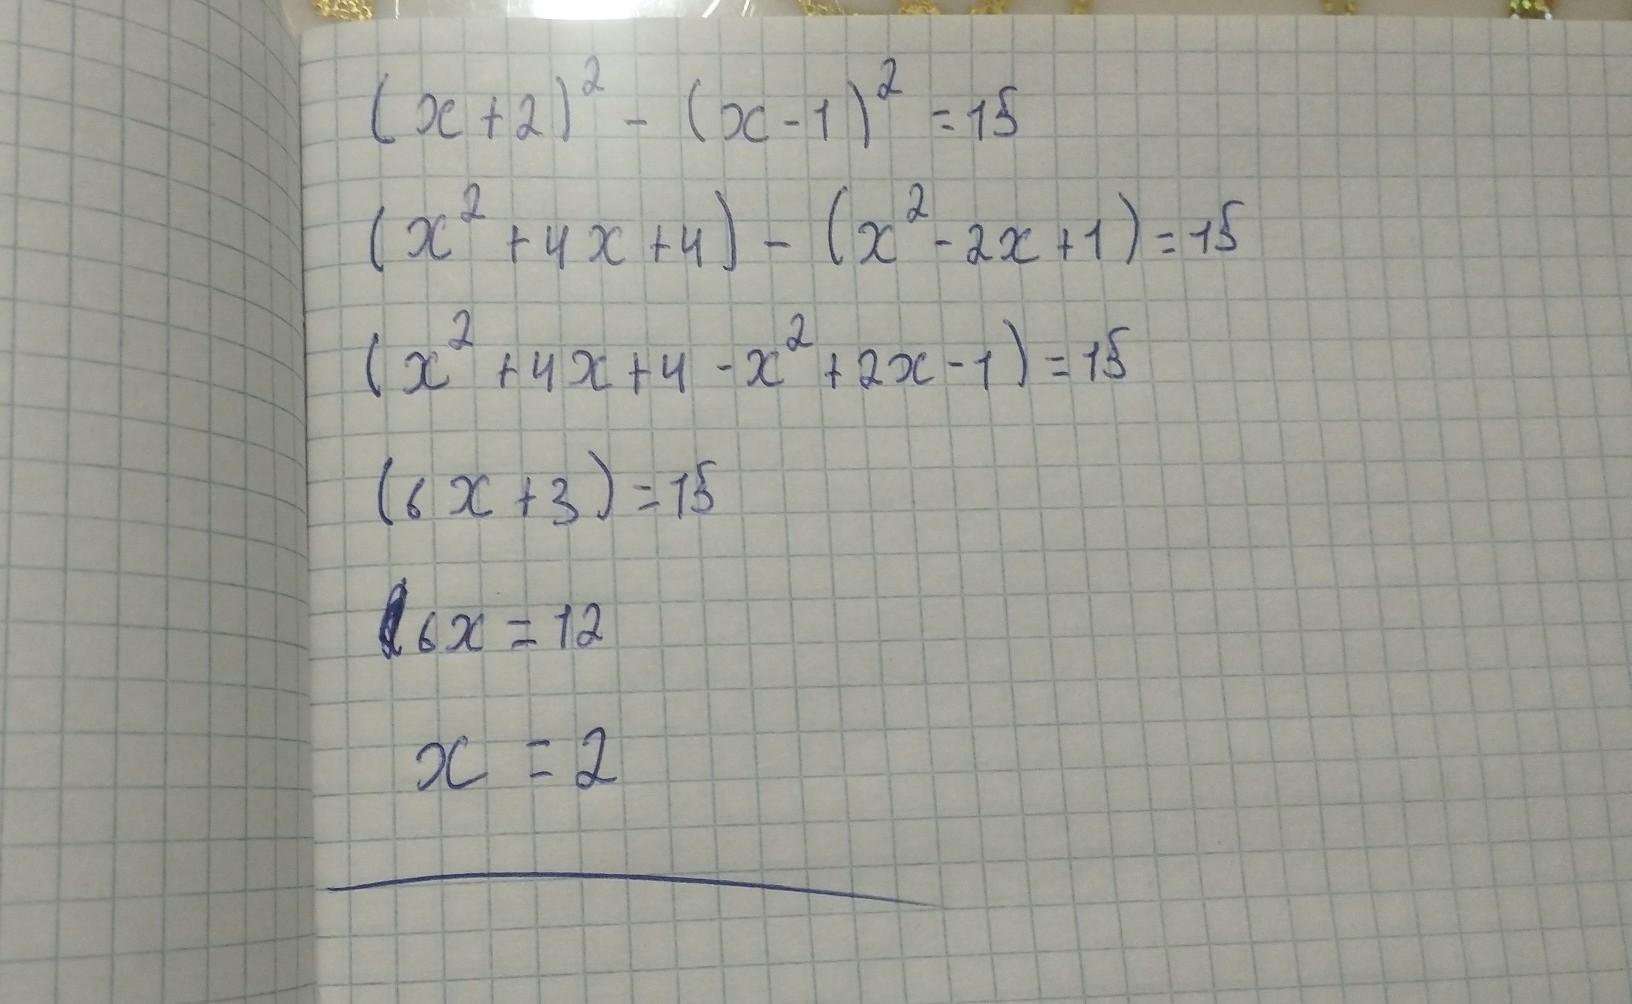 (x+2)² - (x-1)² = 15
(x² + 4x + 4) - (x² - 2x + 1) = 15
(x² + 4x + 4 - x² + 2x - 1) = 15
(6x + 3) = 15
6x = 12
x = 2